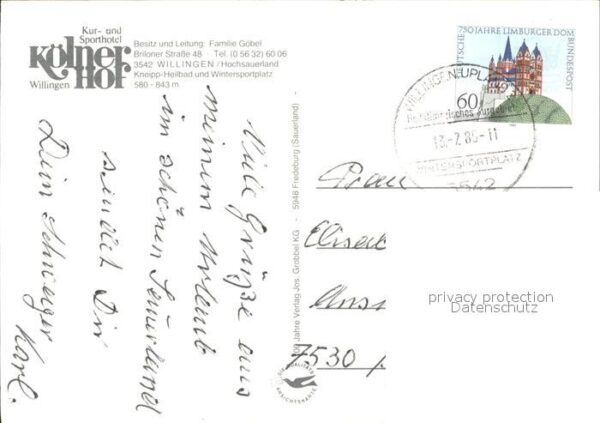 Kur- und
Sporthotel
Kölner
Hof
Willingen
Besitz und Leitung: Familie Göbel
Briloner Straße 48 · Tel. (0 56 32) 60 06
3542 WILLINGEN / Hochsauerland
Kneipp-Heilbad und Wintersportplatz
580 - 843 m
Viele Grüße aus
meinem Urlaub
im schönen Sauerland
sendet Dir
Dein Schwager
Karl.
Jahre Verlag Jos. Grobbel KG · 5948 Fredeburg (Sauerland)
DEUTSCHE BUNDESPOST
750 JAHRE LIMBURGER DOM
60
WILLINGEN, UPLAND
13.-7.86-11
WINTERSPORTPLATZ
3542
Frau
Elisab
7530 P
privacy protection
Datenschutz
ANSICHTSKARTE